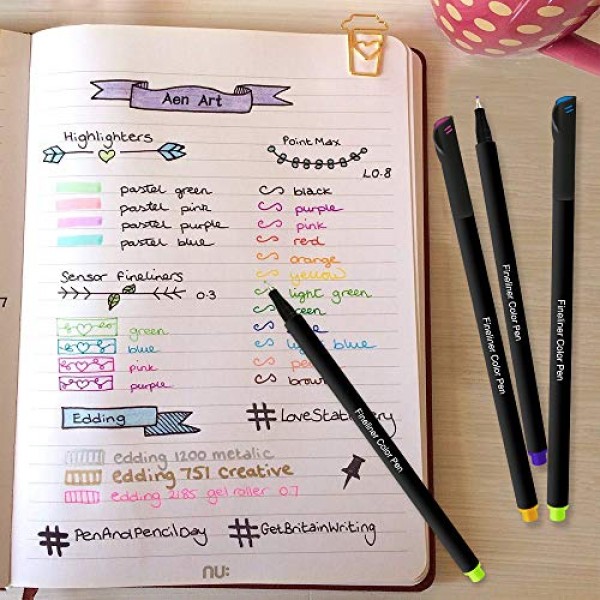 Aen Art
Highlighters
pastel green
pastel pink
pastel purple
pastel blue
Sensor Fineliners
0.3
green
blue
pink
purple
Point Max
L0.8
black
purple
pink
red
orange
yellow
light green
green
light blue
brown
Edding
#LoveStationery
edding 1200 metalic
edding 751 Creative
edding 2185 gel roller 0.7
#PenAndPencilDay
#GetBritainWriting
nu:
7
Fineliner Color Pen
Fineliner Color Pen
Fineliner Color Pen
Fineliner Color Pen